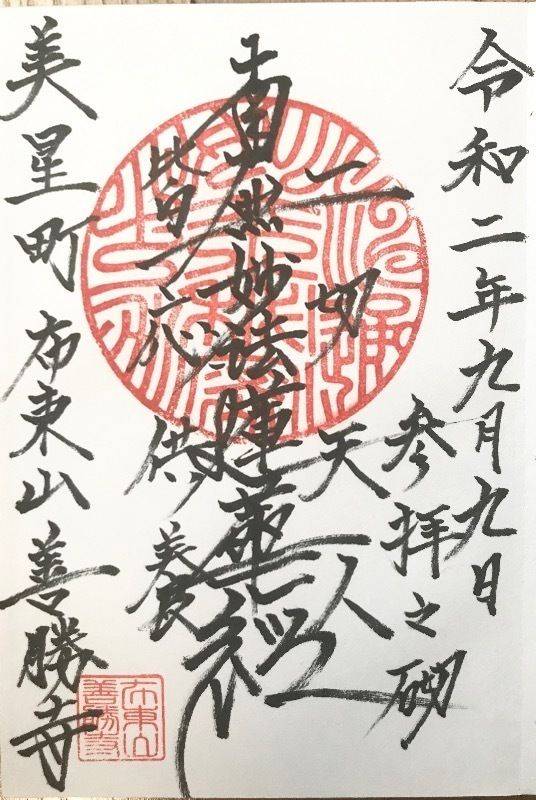 令和二年九月九日
参拝之砌
一切天人
南無妙法蓮華経
皆應供養
美星町布東山善勝寺
布東山
善勝寺